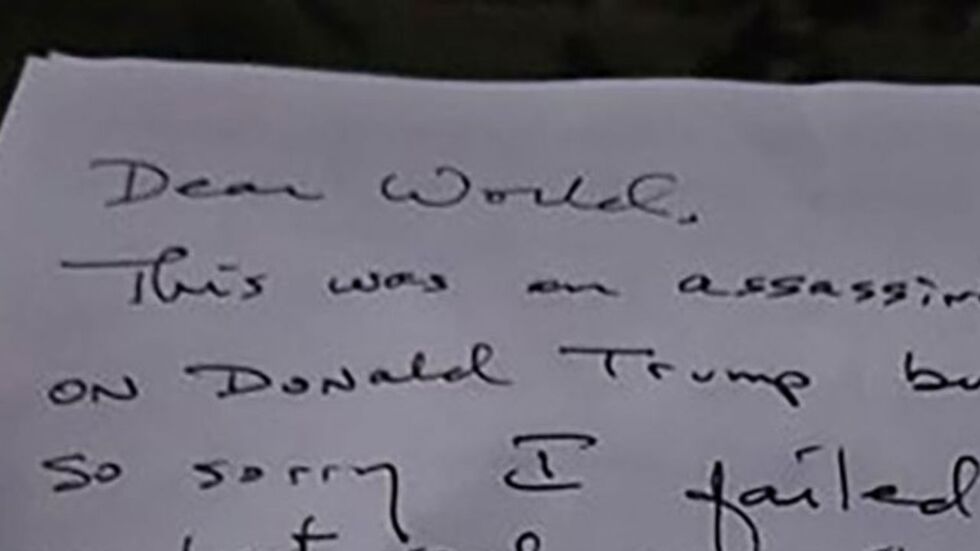 Dear World,
This was an assassin
on Donald Trump bu
so sorry I failed